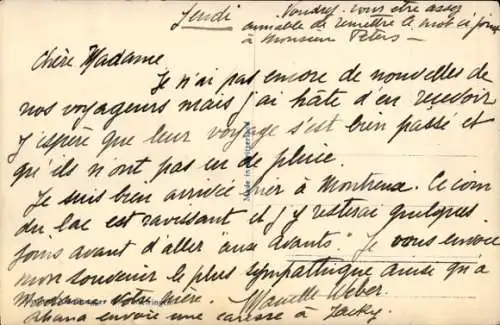 Jeudi
Voudrez-vous être assez
aimable de remettre le mot ci joint
à Monsieur Peters —
Chère Madame
Je n'ai pas encore de nouvelles de
nos voyageurs mais j'ai hâte d'en recevoir
J'espère que leur voyage s'est bien passé et
qu'ils n'ont pas eu de pluie.
Je suis bien arrivée hier à Montreux. Ce coin
du lac est ravissant et j'y resterai quelques
jours avant d'aller "aux Avants". Je vous envoie
mon souvenir le plus sympathique ainsi qu'à
votre mère. Weber
envoie une caresse à Jacky.
Made in Switzerland